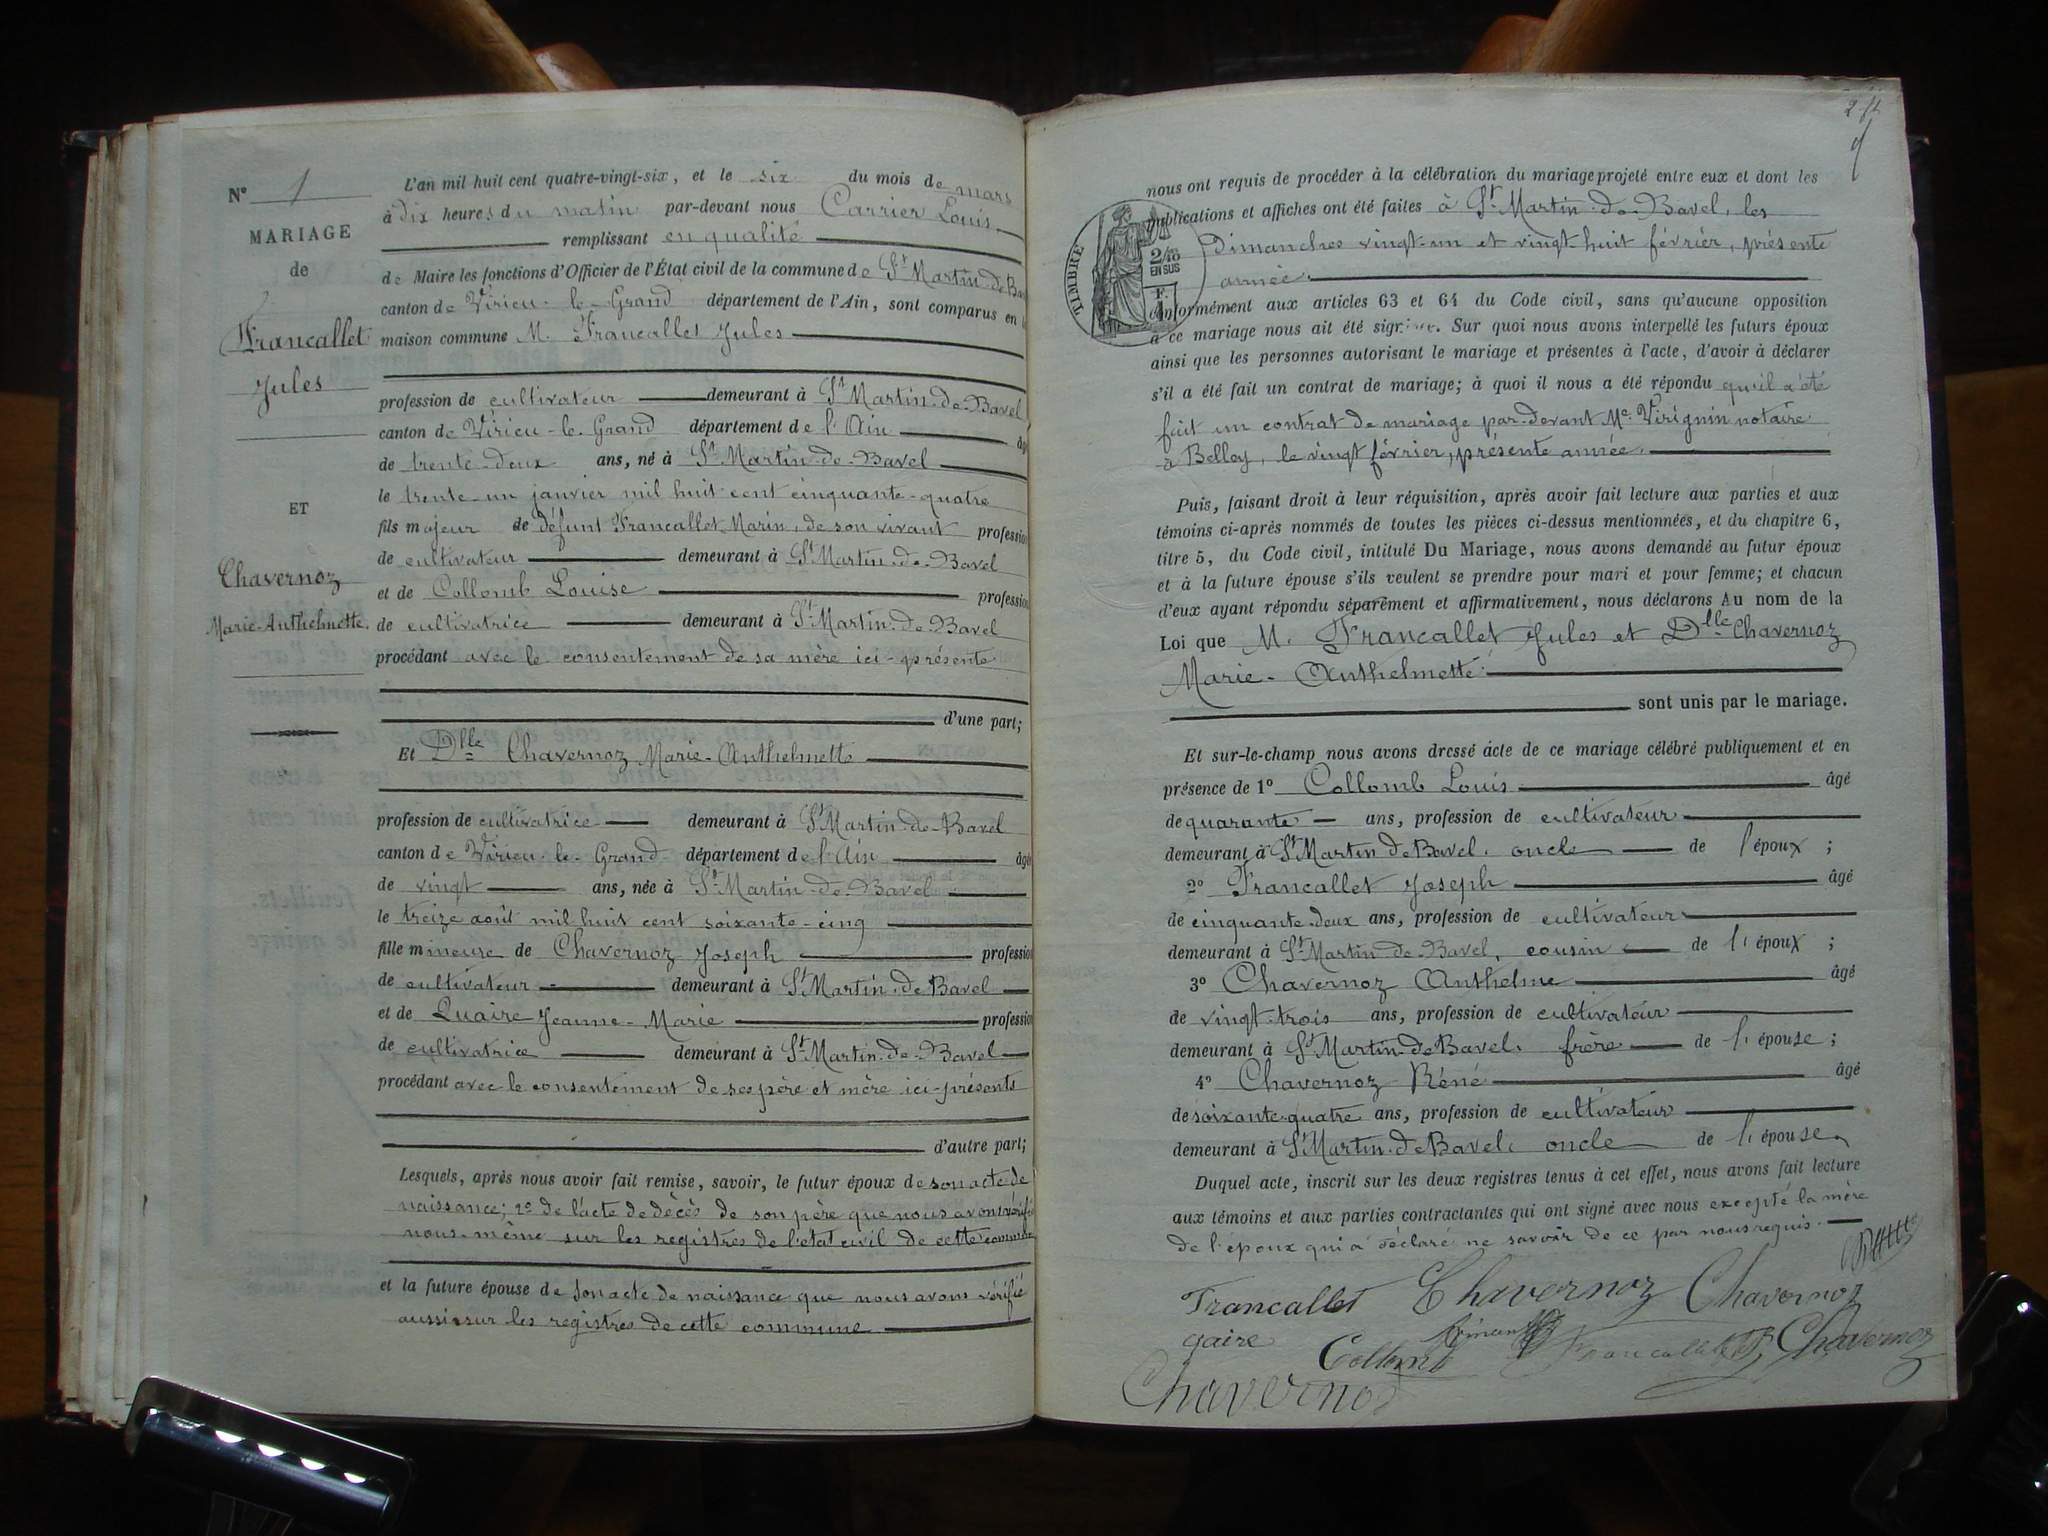 N° 1
MARIAGE
de
Francallet
Jules
ET
Chavernoz
Marie-Anthelmette.
L'an mil huit cent quatre-vingt-six, et le six du mois de mars
à dix heures du matin par-devant nous Carrier Louis
remplissant en qualité
de Maire les fonctions d'Officier de l'État civil de la commune de St Martin-de-Bav
canton de Virieu-le-Grand département de l'Ain, sont comparus en l
maison commune M. Francallet Jules
profession de cultivateur demeurant à St Martin-de-Bavel
canton de Virieu-le-Grand département de l'Ain âgé
de trente-deux ans, né à St Martin-de-Bavel
le trente-un janvier mil huit cent cinquante-quatre
fils majeur de défunt Francallet Marin, de son vivant profession
de cultivateur demeurant à St Martin-de-Bavel
et de Collomb Louise profession
de cultivatrice demeurant à St Martin-de-Bavel
procédant avec le consentement de sa mère ici-présente
d'une part;
Et Dlle Chavernoz Marie-Anthelmette
profession de cultivatrice demeurant à St Martin-de-Bavel
canton de Virieu-le-Grand département de l'Ain âgé
de vingt ans, née à St Martin-de-Bavel
le treize août mil huit cent soixante-cinq
fille mineure de Chavernoz Joseph profession
de cultivateur demeurant à St Martin-de-Bavel
et de Quaire Jeanne-Marie profession
de cultivatrice demeurant à St Martin-de-Bavel
procédant avec le consentement de ses père et mère ici-présents
d'autre part;
Lesquels, après nous avoir fait remise, savoir, le futur époux de son acte de
naissance; 2° de l'acte de décès de son père que nous avons vérifié
nous-même sur les registres de l'état civil de cette commune
et la future épouse de son acte de naissance que nous avons vérifié
aussi sur les registres de cette commune
TIMBRE
2/10
EN SUS
F.
1
nous ont requis de procéder à la célébration du mariage projeté entre eux et dont les
publications et affiches ont été faites à St Martin-de-Bavel, les
dimanches vingt-un et vingt-huit février, présente
année.
conformément aux articles 63 et 64 du Code civil, sans qu'aucune opposition
à ce mariage nous ait été signifiée. Sur quoi nous avons interpellé les futurs époux
ainsi que les personnes autorisant le mariage et présentes à l'acte, d'avoir à déclarer
s'il a été fait un contrat de mariage; à quoi il nous a été répondu qu'il a été
fait un contrat de mariage par-devant Me Virignin notaire
à Belley, le vingt février, présente année.
Puis, faisant droit à leur réquisition, après avoir fait lecture aux parties et aux
témoins ci-après nommés de toutes les pièces ci-dessus mentionnées, et du chapitre 6,
titre 5, du Code civil, intitulé Du Mariage, nous avons demandé au futur époux
et à la future épouse s'ils veulent se prendre pour mari et pour femme; et chacun
d'eux ayant répondu séparément et affirmativement, nous déclarons Au nom de la
Loi que M. Francallet Jules et Dlle Chavernoz
Marie-Anthelmette
sont unis par le mariage.
Et sur-le-champ nous avons dressé acte de ce mariage célébré publiquement et en
présence de 1° Collomb Louis âgé
de quarante ans, profession de cultivateur
demeurant à St Martin de Bavel, oncle de l'époux;
2° Francallet Joseph âgé
de cinquante-deux ans, profession de cultivateur
demeurant à St Martin-de-Bavel, cousin de l'époux;
3° Chavernoz Anthelme âgé
de vingt-trois ans, profession de cultivateur
demeurant à St Martin-de-Bavel, frère de l'épouse;
4° Chavernoz Réné âgé
de soixante-quatre ans, profession de cultivateur
demeurant à St Martin-de-Bavel, oncle de l'épouse.
Duquel acte, inscrit sur les deux registres tenus à cet effet, nous avons fait lecture
aux témoins et aux parties contractantes qui ont signé avec nous excepté la mère
de l'époux qui a déclaré ne savoir de ce par nous requis.
Francallet Chavernoz Chavernoz
quire Collomb Francallet Chavernoz
Chavernoz